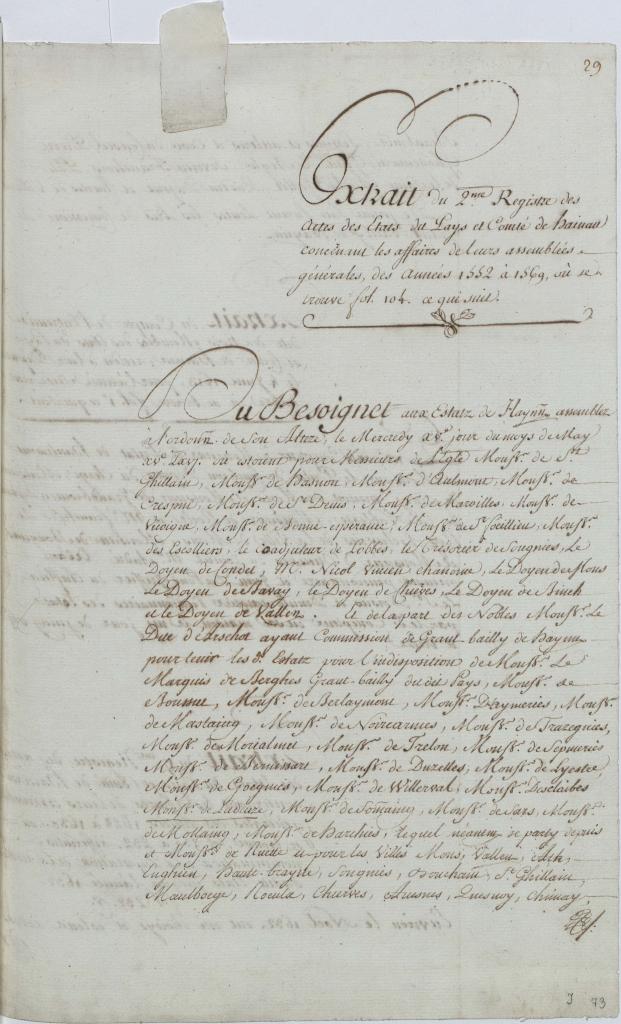 29
Extrait du 2.me Registre des
Actes des Etats du Pays et Comté de hainau
concernant les affaires de leurs assemblées
générales, des Années 1552 à 1569, où se
trouve fol. 104. ce qui suit.
Du Besoignet aux Estatz de Haynn. assemblez
à l'ordonn. de Son Alteze, le Mercredy xv.e jour du moys de May
xv.c lxvj. où estoient pour Messieurs de l'Egle Monsr. de St
Ghillain, Monsr. de hasnon, Monsr. d'aulmont, Monsr. de
Crespin, Monsr. de St Denis, Monsr. de Maroilles, Monsr. de
Vicoigne, Monsr. de Bonne esperance, Monsr. de St foeillien, Monsr.
des Escolliers, le Coadjuteur de Lobbes, le Trésorier de Songnies, Le
Doyen de Condet, Mr. Nicol chanone, Le Doyen de Mons
Le Doyen de Bavay, le Doyen de Chièves, Le Doyen de Binch
et le Doyen de Vallen. Et de la part des Nobles Monsr. Le
Duc d'Arschot ayant Commission de Grant-bailly de Haynn
pour tenir les d. Estatz pour l'indisposition de Monsr. Le
Marquis de Berghes Grant-bailly du dit Pays, Monsr. de
Boussut, Monsr. de Berlaymont, Monsr. D'aymeries, Monsr.
de Mastaing, Monsr. de Noircarmes, Monsr. de Trazegnies,
Monsr. de Morialmet, Monsr. de Trelon, Monsr. de Sepmeries
Monsr. de , Monsr. de Duzelles, Monsr. de Lyestre,
Monsr. de Goegnies, Monsr. de Willerval, Monsr. Desclaibes
Monsr. de Ludieze, Monsr. de fontaing, Monsr. de Sars, Monsr.
de Mollaing, Monsr. de Harchies, lequel néantm. de party depuis
et Monsr. de Ruette et pour les Villes Mons, Vallen, Ath,
Enghien, Haulx-brayne, Songnies, Bouchain, St. Ghillain,
Maulboege, Roeulx, Chierves, Avesnes, Quesnoy, Chimay,
J 73